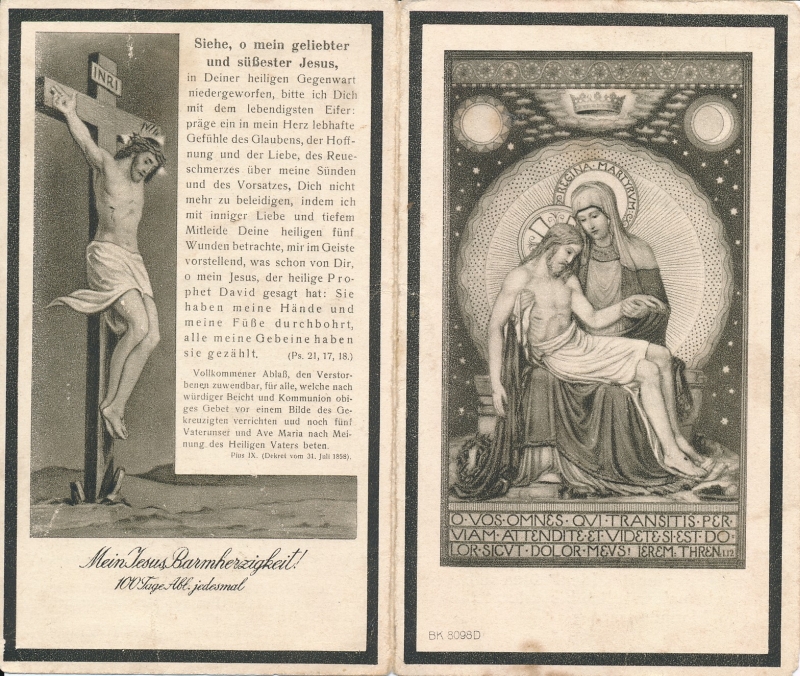 INRI
Siehe, o mein geliebter
und süßester Jesus,
in Deiner heiligen Gegenwart
niedergeworfen, bitte ich Dich
mit dem lebendigsten Eifer:
präge ein in mein Herz lebhafte
Gefühle des Glaubens, der Hoff-
nung und der Liebe, des Reue-
schmerzes über meine Sünden
und des Vorsatzes, Dich nicht
mehr zu beleidigen, indem ich
mit inniger Liebe und tiefem
Mitleide Deine heiligen fünf
Wunden betrachte, mir im Geiste
vorstellend, was schon von Dir,
o mein Jesus, der heilige Pro-
phet David gesagt hat: Sie
haben meine Hände und
meine Füße durchbohrt,
alle meine Gebeine haben
sie gezählt. (Ps. 21, 17, 18.)
Vollkommener Ablaß, den Verstor-
benen zuwendbar, für alle, welche nach
würdiger Beicht und Kommunion obi-
ges Gebet vor einem Bilde des Ge-
kreuzigten verrichten und noch fünf
Vaterunser und Ave Maria nach Mei-
nung des Heiligen Vaters beten.
Pius IX. (Dekret vom 31. Juli 1858).
Mein Jesus, Barmherzigkeit!
100 Tage Abl. jedesmal
REGINA·MARTYRVM
O·VOS·OMNES·QVI·TRANSITIS·PER·
VIAM·ATTENDITE·ET·VIDETE·SI·EST·DO-
LOR·SICVT·DOLOR·MEVS! IEREM·THREN.I.12
BK 8098D